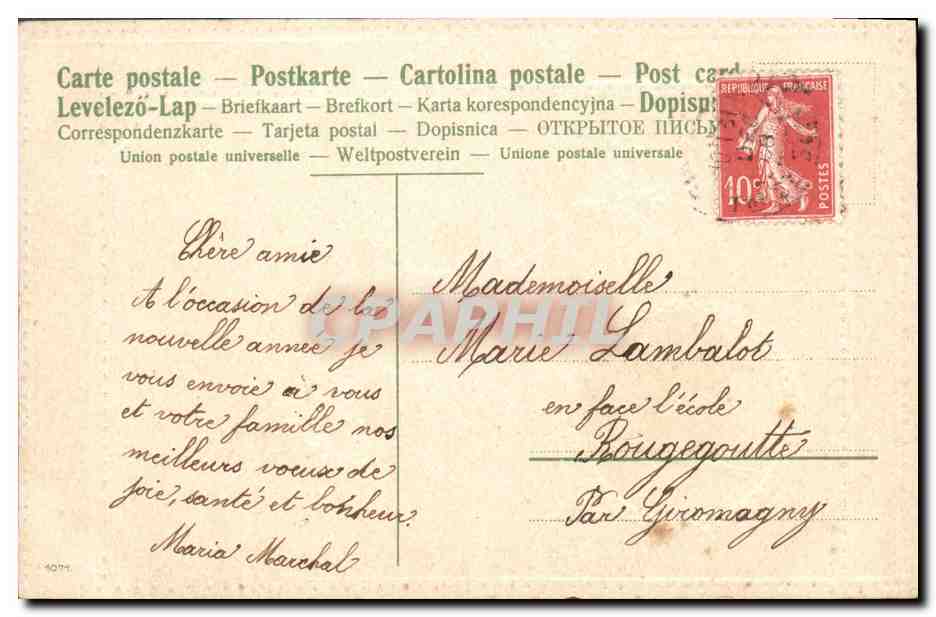 Carte postale — Postkarte — Cartolina postale — Post card
Levelező-Lap — Briefkaart — Brefkort — Karta korespondencyjna — Dopisn
Correspondenzkarte — Tarjeta postal — Dopisnica — ОТКРЫТОЕ ПИСЬМ
Union postale universelle — Weltpostverein — Unione postale universale
REPUBLIQUE FRANÇAISE
10c
POSTES
Chère amie
A l'occasion de la
nouvelle année je
vous envoie à vous
et votre famille nos
meilleurs voeux de
joie, santé et bonheur.
Maria Marchal
Mademoiselle
Marie Lambalot
en face l'école
Rougegoutte
Par Giromagny
CPAPHIL
1071.